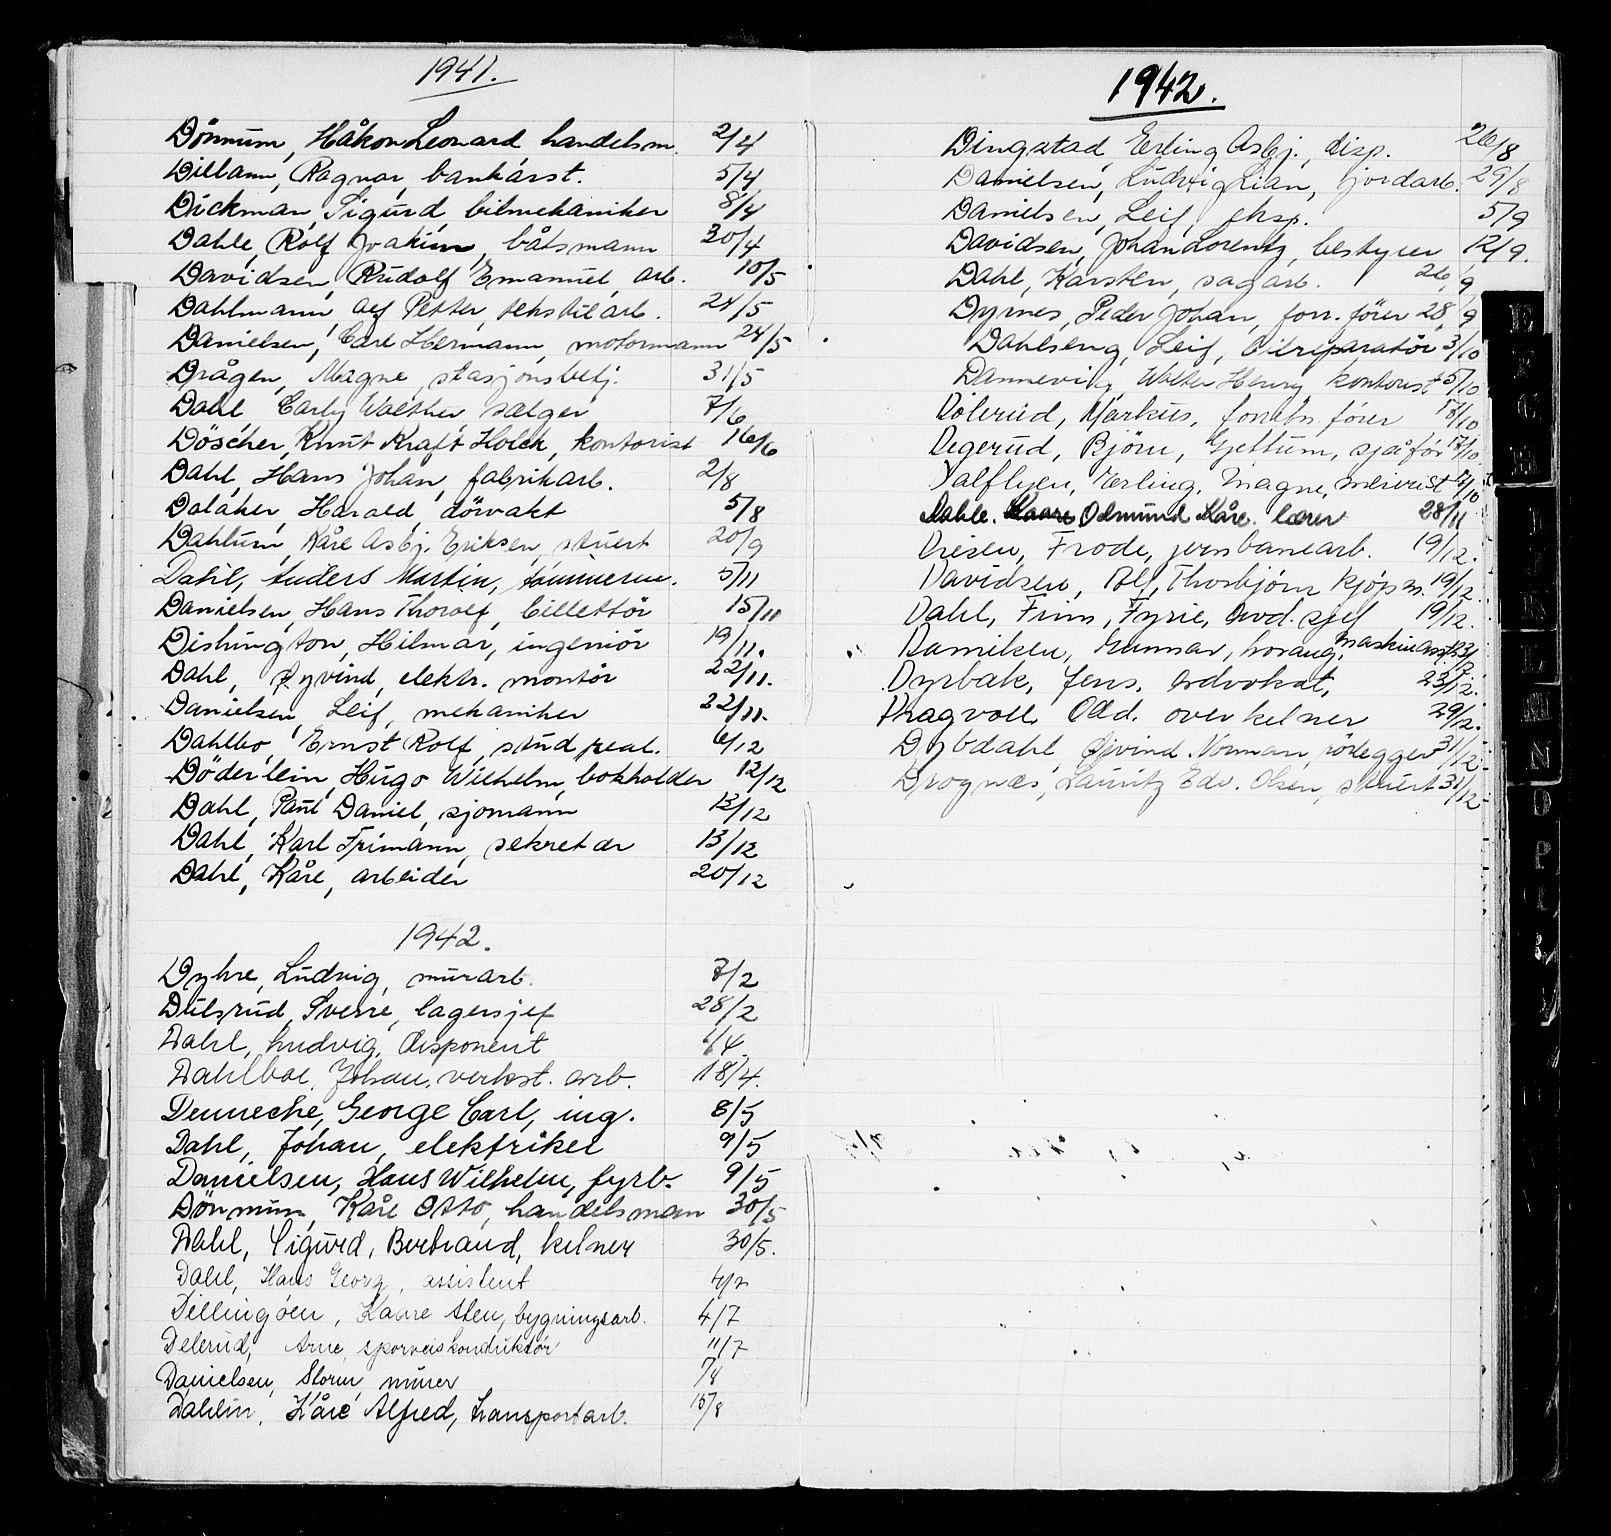 1941.
Dönnum, Håkon Leonard handelsm. 2/4
Dillann, Ragnar, bankasst. 5/4
Dickman, Sigurd bilmekaniker 8/4
Dahle, Rolf Joakim, båtsmann 30/4
Davidsen, Rudolf Emanuel, arb. 10/5
Dahlmann, Alf Petter, tekstilarb. 24/5
Danielsen, Carl Hermann, motormann 24/5
Drågen, Magne, stasjonsbetj. 31/5
Dahl, Carly Walther sælger 7/6
Döscher, Knut Kraft Holck, kontorist 16/6
Dahl, Hans Johan, fabrikarb. 2/8
Dalåker, Harald, dörvakt 5/8
Dahlum, Kåre Asbj. Eriksen, stuert 20/9
Dahl, Anders Martin, tömmerm. 5/11
Danielsen, Hans Thorolf, billettör 15/11
Dishington, Hilmar, ingeniör 19/11.
Dahl, Øyvind, elektr. montör 22/11.
Danielsen, Leif, mekaniker 22/11.
Dahlbo, Ernst Rolf, stud. real. 6/12
Döderlein, Hugo Wilhelm, bokholder 12/12
Dahl, Paul Daniel, sjömann 13/12
Dahl, Karl Frimann, sekretær 13/12
Dahl, Kåre, arbeider 20/12
1942.
Dyhre, Ludvig, murarb. 7/2
Dulsrud, Sverre, lagersjef 28/2
Dahl, Ludvig, disponent /4.
Dahlboe, Johan, verkst. arb. 18/4.
Denneche, George Carl, ing. 8/5
Dahl, Johan, elektriker 9/5
Danielsen, Hans Wilhelm, fyrb. 9/5
Dönnum, Kåre Otto, handelsmann 30/5
Dahl, Sigurd, Bertrand, kelner 30/5.
Dahl, Hans Georg, assistent 4/7
Dillingöen, Kaare Sten, bygningsarb. 4/7
Delerud, Arne, sporveiskonduktör 11/7
Danielsen, Storm murer /8
Dahlin, Kåre Alfred, transportarb. 15/8
1942.
Dingstad, Erling Asbj., disp. 26/8
Danielsen, Ludvig Lian, jordarb. 29/8
Danielsen, Leif, eksp. 5/9
Davidsen, Johan Lorentz, bestyrer 12/9.
Dahl, Karsten, sagarb. 26/9
Dyrnes, Peder Johan, forr. förer 28/9
Dahlseng, Leif, bilreparatör 3/10
Dannevig, Walter Henry kontorist 5/10
Dölerud, Markus, forretn. förer 17/10
Degerud, Björn, Gjettum, sjåför 17/10.
Dalflyen, Erling, Magne, /10
Dahle. Kaare Odmund Kåre. lærer 28/11
Diesen, Frode, jernbanearb. 19/12.
Davidsen, Alf, Thorbjörn kjöpm. 19/12.
Dahl, Finn, Fyrie, avd. sjef 19/12.
Danielsen, Gunnar, maskinarb. 23/12.
Dyrbak, Jens, advokat, 23/12.
Dragvoll, Odd. overkelner 29/12.
Dybdahl, Øjvind Norman, rörlegger 31/12.
Drognæs, Lauritz Edv. Olsen, stuert 31/12
E
F
G
H
I
J
K
L
M
N
O
P